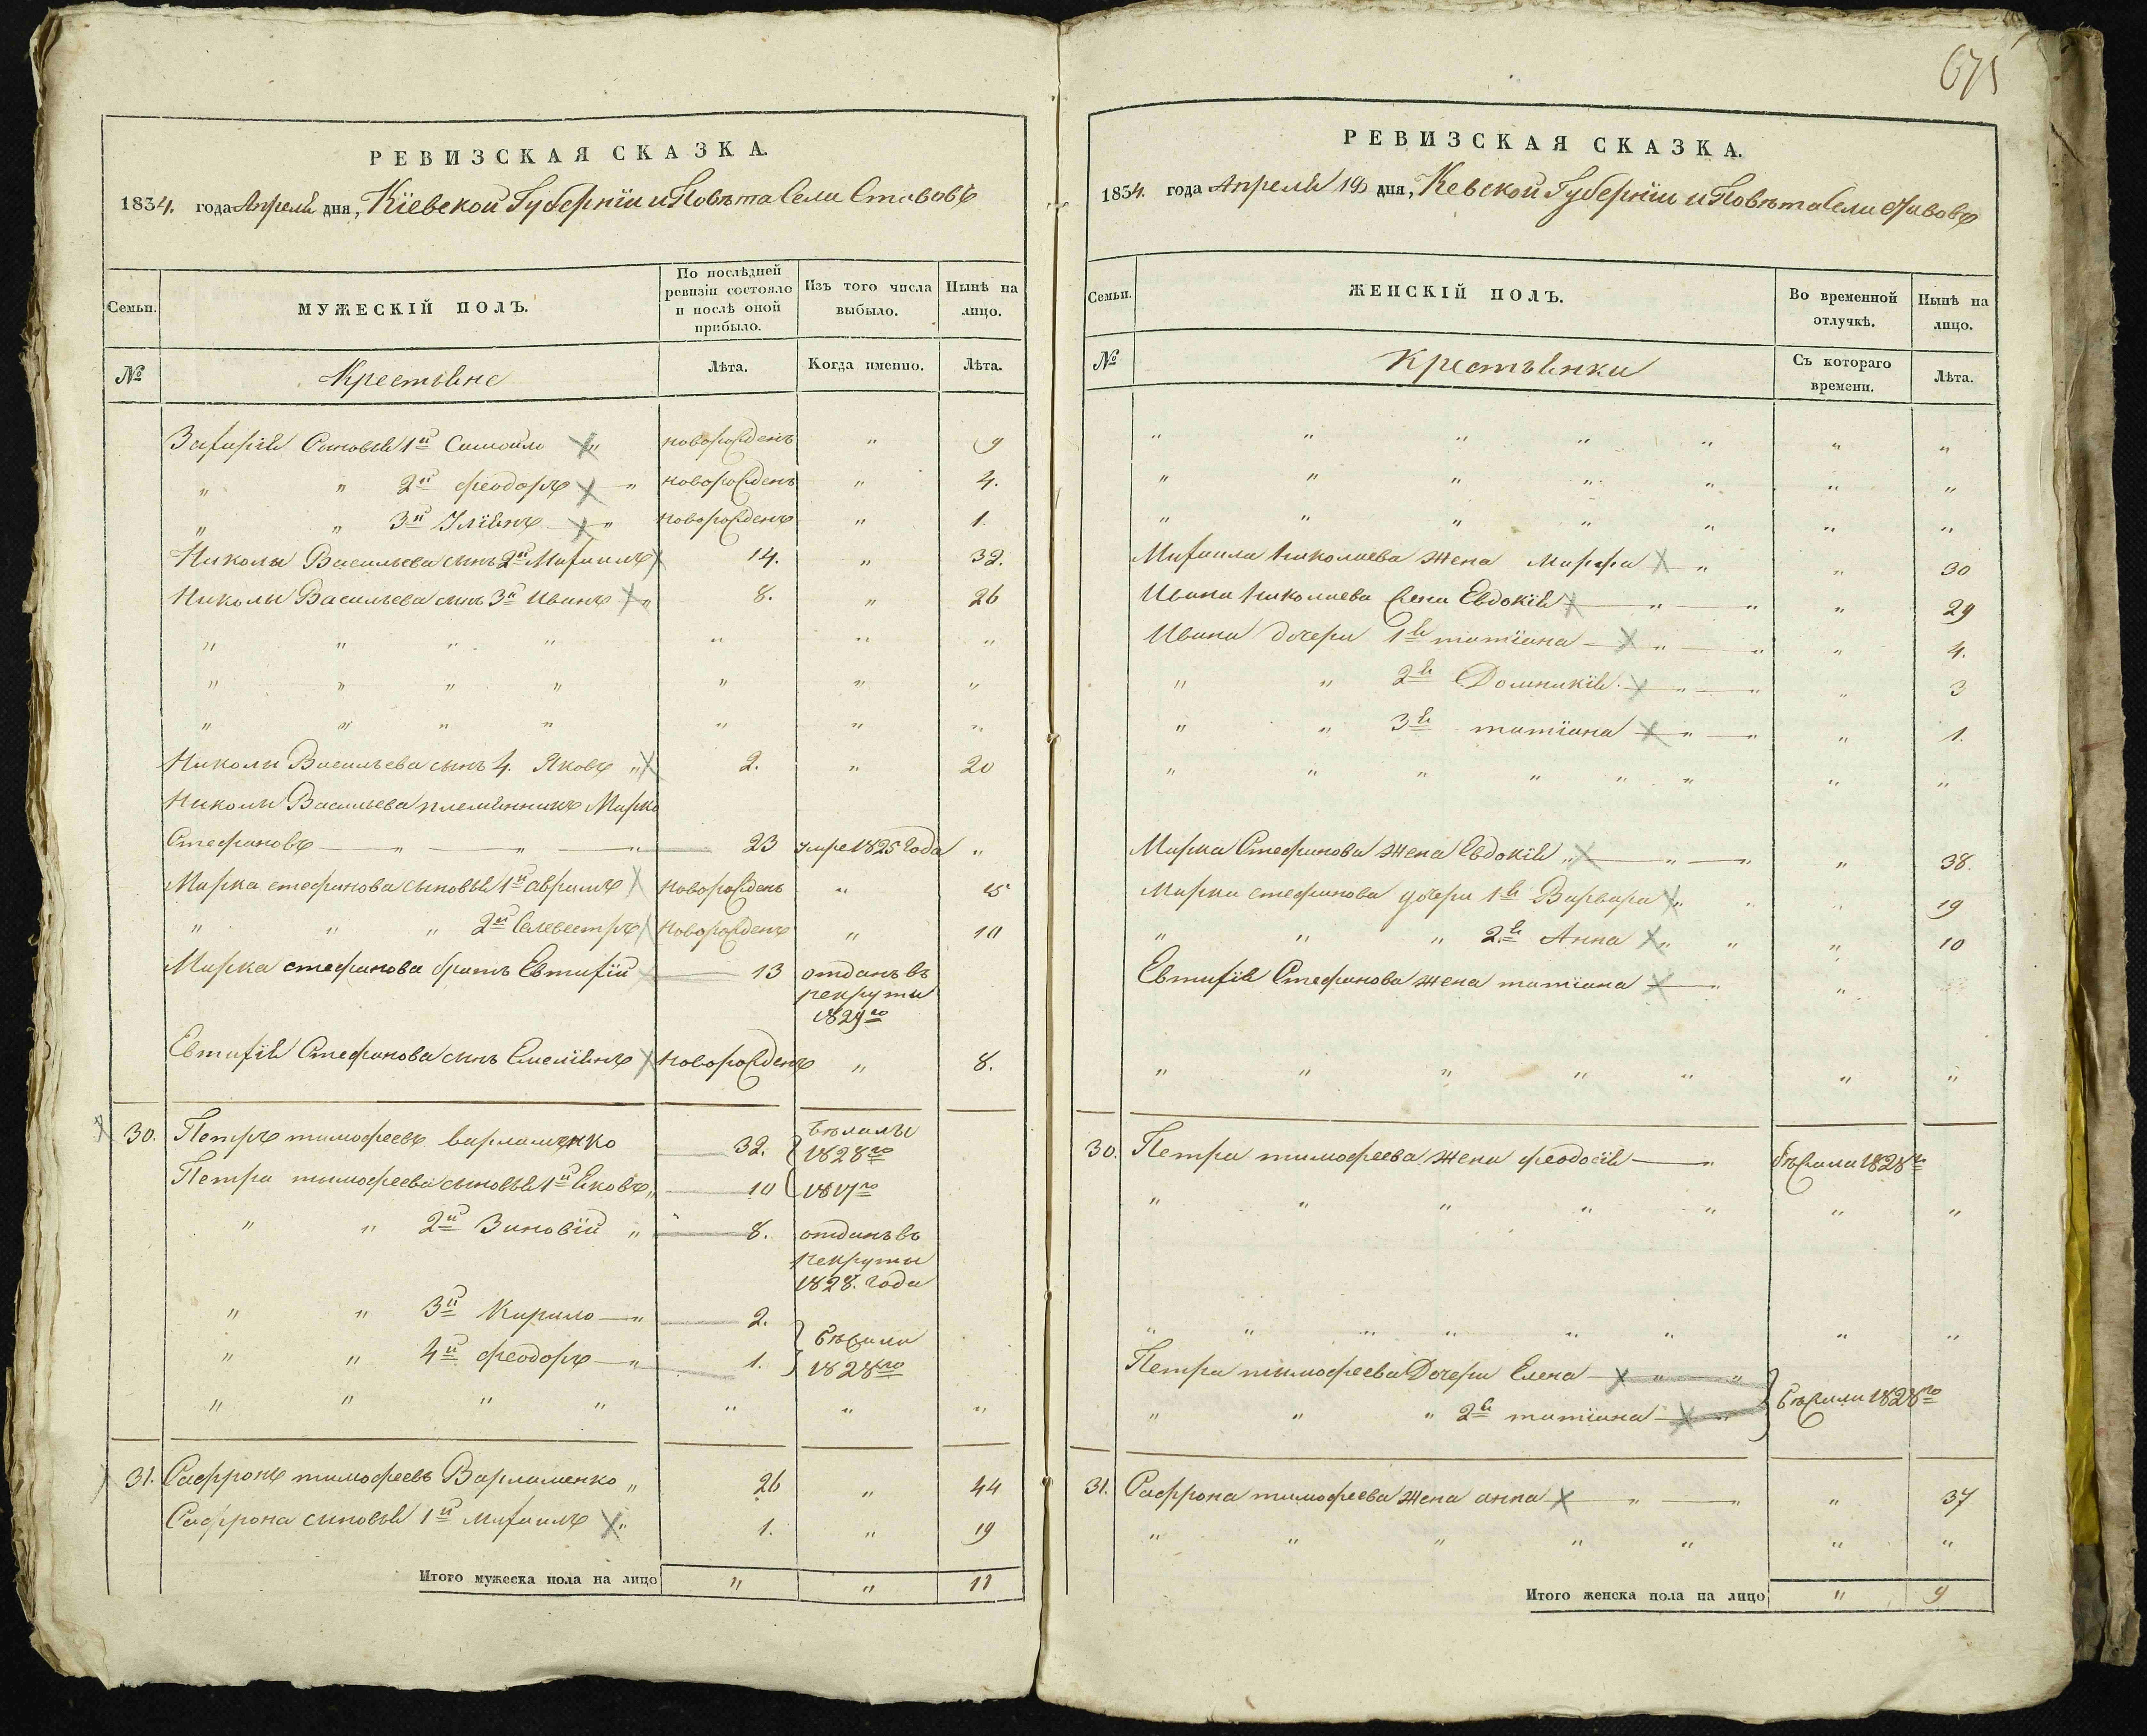 675
РЕВИЗСКАЯ СКАЗКА.
1834. года Апреля дня, Кіевской Губернїи и Повѣта Села Ставовъ
Семьи.
МУЖЕСКІЙ ПОЛЪ.
По послѣдней ревизіи состояло и послѣ оной прибыло.
Изъ того числа выбыло.
Нынѣ на лицо.
№
Крестьяне
Лѣта.
Когда именно.
Лѣта.
Захарія Сыновья 1й Самойло новорожденъ " 9
" " 2й феодоръ " новорожденъ " 4.
" " 3й Улїянъ " новорожденъ " 1.
Николы Васильева сынъ 2й Михаилъ 14. " 32.
Николы Васильева сынъ 3й Иванъ " 8. " 26
" " " " " " "
" " " " " " "
" " " " " " "
Николы Васильева сынъ 4. Яковъ " 2. " 20
Николы Васильева племянникъ Марко
Стефановъ " " " 23 умре 1825 года "
Марка стефанова сыновья 1й аврамъ новорожденъ " 15
" " " 2й Селевестръ новорожденъ " 10
Марка стефанова братъ Евтихїй 13 отданъ въ
рекруты
1829го
Евтихїя Стефанова сынъ Емелїянъ новорожденъ " 8.
30. Петръ тимофеевъ варламенко 32. бѣжалъ
1828го
Петра тимофеева сыновья 1й Яковъ " 10 1817го
" " 2й Зиновїй " 8. отданъ въ
рекруты
1828. года
" " 3й Кирило " 2.
бѣжали
" " 4й феодоръ " 1. 1828го
" " " " " " "
31. Сафронъ тимофеевъ Варламенко " 26 " 44
Сафрона сыновья 1й михаилъ " 1. " 19
Итого мужеска пола на лицо " " 11
РЕВИЗСКАЯ СКАЗКА.
1834. года Апреля 19 дня, Кевской Губернїи и Повѣта Села Ставовъ
Семьи.
ЖЕНСКІЙ ПОЛЪ.
Во временной отлучкѣ.
Нынѣ на лицо.
№
Крестьянки
Съ котораго времени.
Лѣта.
" " " " " " "
" " " " " " "
" " " " " " "
Михаила николаева жена Марфа " " 30
Ивана николаева жена Евдокія " " " 29
Ивана дочери 1я татїана " " " 4.
" " 2я Домникія " " " 3
" " 3я татїана " " " 1.
" " " " " " " "
Марка Стефанова жена Евдокія " " " " 38.
Марка стефанова дочери 1я Варвара " " " 19
" " " 2я Анна " " " 10
Евтихїя Стефанова жена татїана " "
" " " " " " "
30. Петра тимофеева жена феодосія " бѣжала 1828го
" " " " " " "
" " " " " " " "
Петра тимофеева Дочери Елена " "
бѣжали 1828го
" " " 2я татїана "
31. Сафрона тимофеева жена анна " " " 37
" " " " " " "
Итого женска пола на лицо " 9